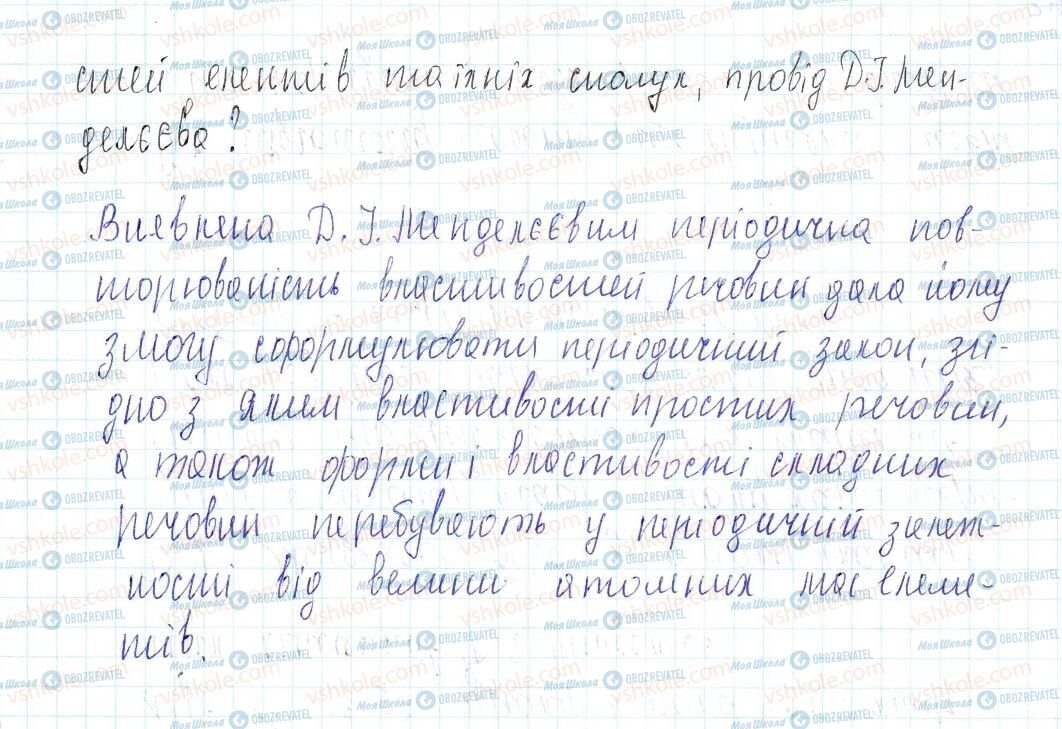 стей елентів та їхніх сполук, провід Д.І. Мен-
делєєва?
Виевлена Д.І. Менделєєвим періодична пов-
торюваність властивостей речовин дала йому
змогу сформулювати періодичний закон, згі-
дно з яким властивості простих речовин,
а також форми і властивості складних
речовин перебувають у періодичній залеж-
ності від велини атомних мас елеме-
нтів.